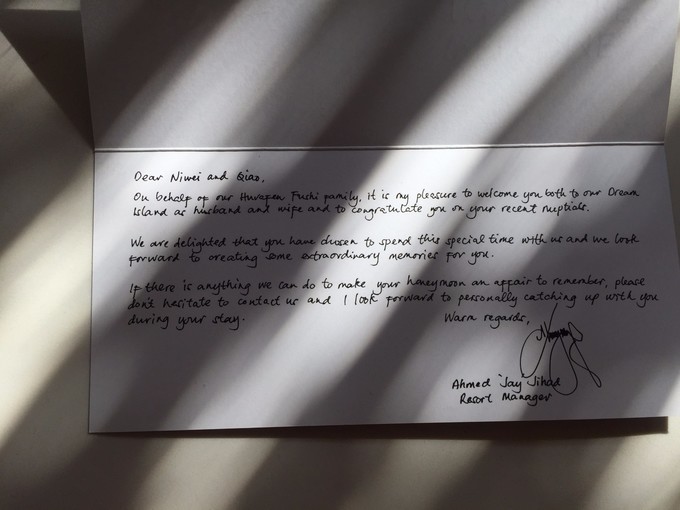 Dear Niwei and Qiao,
On behalf of our Huvafen Fushi family, it is my pleasure to welcome you both to our Dream
Island as husband and wife and to congratulate you on your recent nuptials.
We are delighted that you have chosen to spend this special time with us and we look
forward to creating some extraordinary memories for you.
If there is anything we can do to make your honeymoon an affair to remember, please
don't hesitate to contact us and I look forward to personally catching up with you
during your stay.
Warm regards,
Ahmed 'Jay' Jihad
Resort Manager